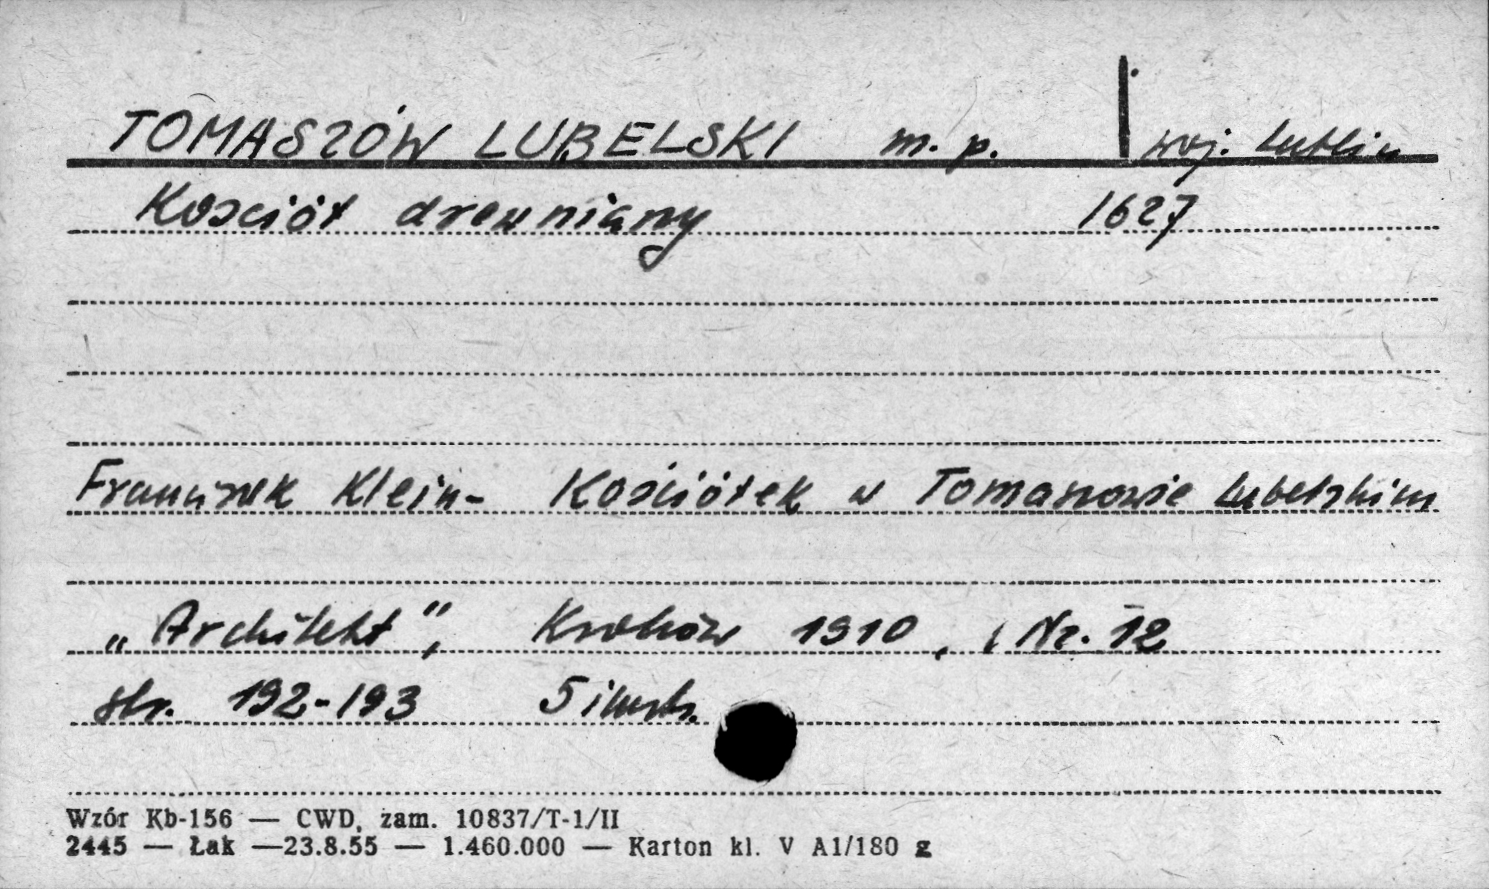 TOMASZÓW LUBELSKI m. p. woj. Lublin
Kościół drewniany 1627
Franciszek Klein - Kościółek w Tomaszowie Lubelskim
„Architekt", Kraków 1910, Nr. 12
str. 192-193 5 ilustr.
Wzór Kb-156 — CWD, zam. 10837/T-1/II
2445 — Łak —23.8.55 — 1.460.000 — Karton kl. V A1/180 g